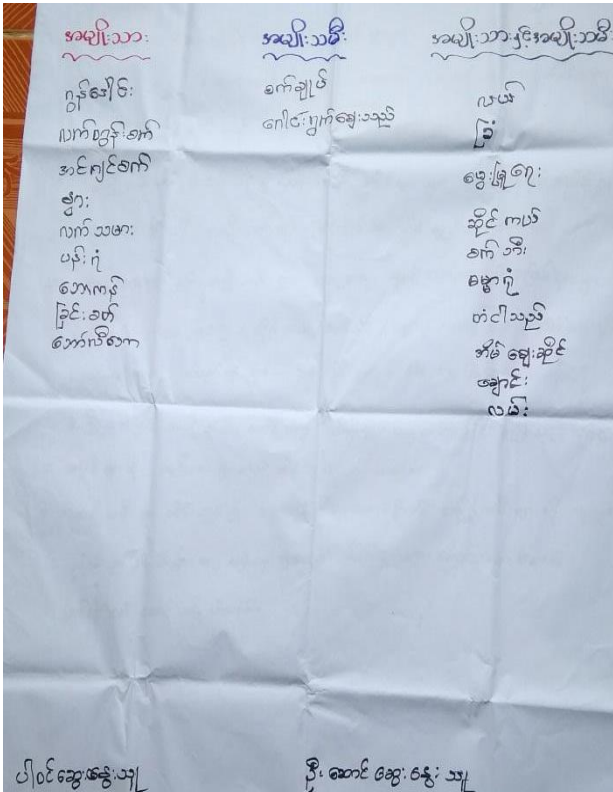 အမျိုးသား
ဂွန်ဒေါင်း
လက်တွန်းစက်
အင်ဂျင်စက်
စွား
လက်သမား
ပန်းရံ
ဘောကန်
ခြင်းခတ်
ဘော်လီဘော
အမျိုးသမီး
စက်ချုပ်
ခေါင်းရွက်ဈေးသည်
အမျိုးသားနှင့်အမျိုးသမီး
လယ်
ခြံ
မွေးမြူရေး
ဆိုင်ကယ်
စက်ဘီး
ဓမ္မာရုံ
တံငါသည်
အိမ်ဈေးဆိုင်
ချောင်း
လမ်း
ပါဝင်ဆွေးနွေးသူ
ဦးဆောင်ဆွေးနွေးသူ